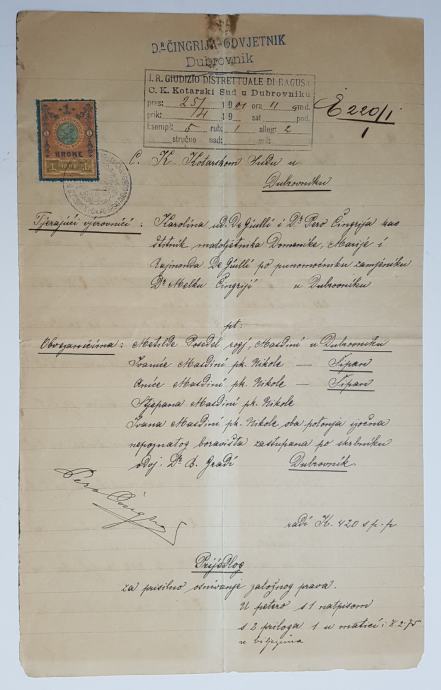 Dr. ČINGRIJA-ODVJETNIK
Dubrovnik
I. R. GIUDIZIO DISTRETTUALE DI RAGUSA
C. K. Kotarski Sud u Dubrovniku
pres: 25/ 1901 ora 11 pred.
prik: /XI 19 sat pod.
esempl: 5 rub: 1 alleg: 2
stručno nad: pril:
E 220/1
1
KRONE
1 1
C. K. Kotarskom Sudu u
Dubrovniku
Tjerajući vjerovnici: Karolina ud. De Giulli i Dr. Pero Čingrija kao
štitnik maloljetnika Domenka, Marije i
Rajmonda De Giulli po punomoćniku zamjeniku
Dr Melku Čingriji u Dubrovniku
pt:
Obvezanicima: Metilde Posedel rogj. Masdini u Dubrovniku
Ivanice Masdini pk. Nikole — Šipan
Anice Masdini pk. Nikole — Šipan
Stjepana Masdini pk. Nikole
Ivana Masdini pk. Nikole oba potonja
nepoznatog boravišta zastupana po skrbniku
odvj: Dr. B. Gradi Dubrovnik.
Pero Čingrija
radi K. 420 s p.p
Prijedlog
za prisilno osnivanje založnog prava.
U petero s 1 natpisom
s 2 priloga 1 u matici:
u biljezima